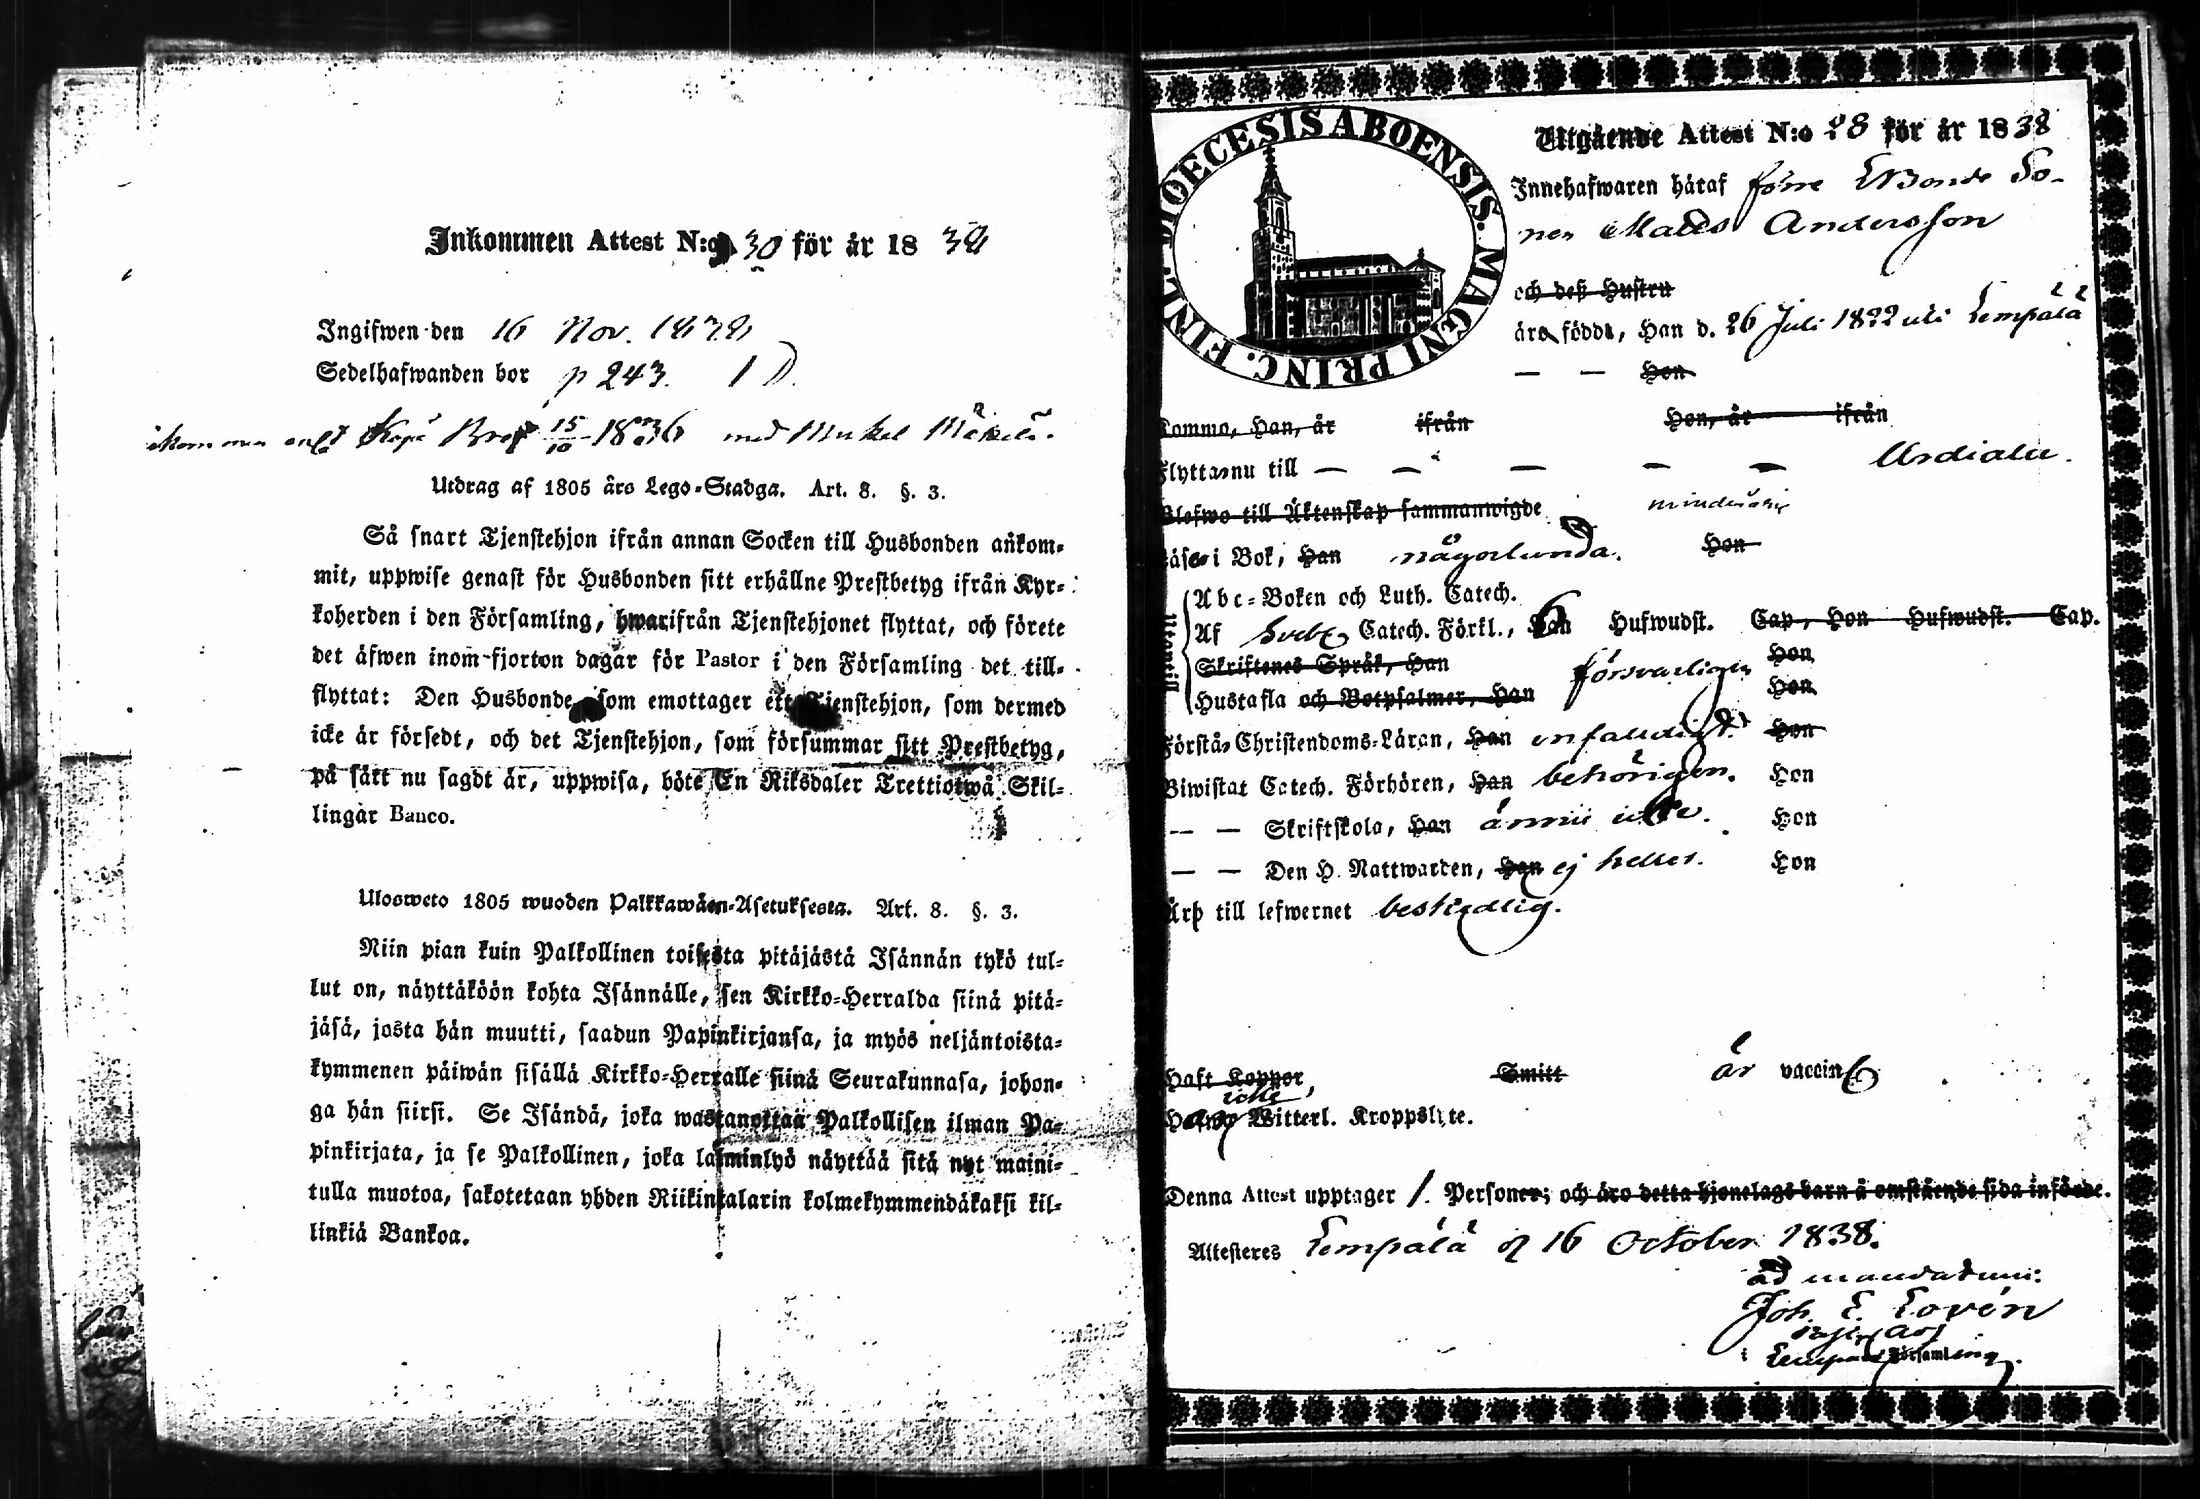 Inkommen Attest N:o 30 för år 1838
Ingifwen den 16 Nov. 1838
Sedelhafwanden bor p 243.
15/10 1836 med
Utdrag af 1805 års Lego-Stadga. Art. 8. §. 3.
Så snart Tjenstehjon ifrån annan Socken till Husbonden ankom-
mit, uppwise genast för Husbonden sitt erhållne Prestbetyg ifrån Kyr-
koherden i den Församling, hwarifrån Tjenstehjonet flyttat, och förete
det äfwen inom fjorton dagar för Pastor i den Församling det till-
flyttat: Den Husbonde som emottager ett Tjenstehjon, som dermed
icke är försedt, och det Tjenstehjon, som försummar sitt Prestbetyg,
på sätt nu sagdt är, uppwisa, böte En Riksdaler Trettiotwå Skil-
lingar Banco.
Ulosweto 1805 wuoden Palkkawäen-Asetuksesta. Art. 8. §. 3.
Niin pian kuin Palkollinen toisesta pitäjästä Isännän tykö tul-
lut on, näyttäköön kohta Isännälle, sen Kirkko-Herralda siinä pitä-
jäsä, josta hän muutti, saadun Papinkirjansa, ja myös neljäntoista-
kymmenen päiwän sisällä Kirkko-Herralle siinä Seurakunnasa, johon-
ga hän siirsi. Se Isändä, joka wastanottaa Palkollisen ilman Pa-
pinkirjata, ja se Palkollinen, joka laiminlyö näyttää sitä nyt maini-
tulla muotoa, sakotetaan yhden Riikintalarin kolmekymmendäkaksi kil-
linkiä Bankoa.
DIOECESIS ABOENSIS. MAGNI PRINC. FINL.
Utgående Attest N:o 28 för år 1838
Innehafwaren häraf förre Bonde So-
nen Matts Andersson
och deß Hustru
äro födde, Han d. 26 Juli 1822 uti Lempälä
— — Hon
Kommo, Han, år ifrån Hon, år ifrån
Flyttar nu till — — — — — Urdiala.
Blefwo till Äktenskap sammanwigde minderårig
Läser i Bok, Han någorlunda. Hon
Utantill
Abc-Boken och Luth. Catech.
Af Sveb. Catech. Förkl., Han 6 Hufwudst. Cap., Hon Hufwudst. Cap.
Skriftenes Språk, Han försvarligen Hon
Hustafla och Botpsalmer, Han Hon
Förstår Christendoms-Läran, Han enfaldigt. Hon
Biwistat Catech. Förhören, Han behörigen. Hon
— — Skriftskola, Han ännu icke. Hon
— — Den H. Nattwarden, Han ej heller. Hon
Är till lefwernet beskedlig.
Haft Koppor, Smitt är vaccin
icke
Witterl. Kroppslyte.
Denna Attest upptager 1. Personer; och äro detta hjonelags barn å omstående sida införde.
Attesteres Lempälä d 16 October 1838.
ad mandatum:
Joh. E. Lovén
i Lempälä Församling.